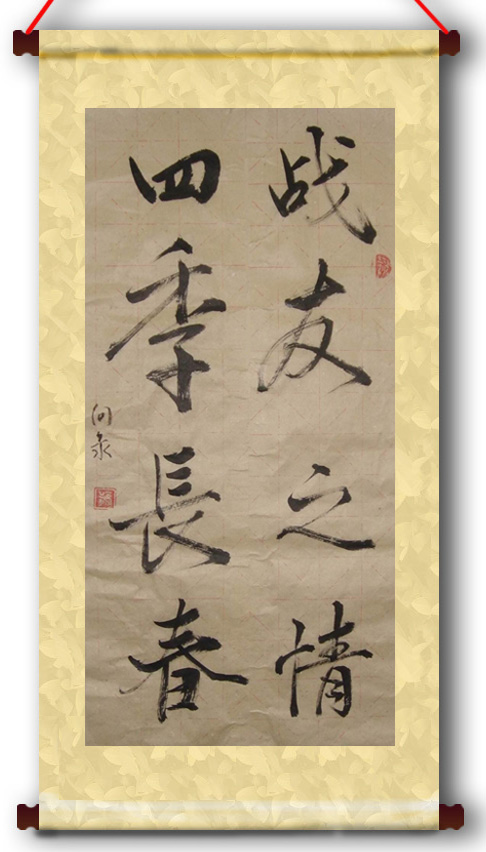 战友之情
四季長春
问泉